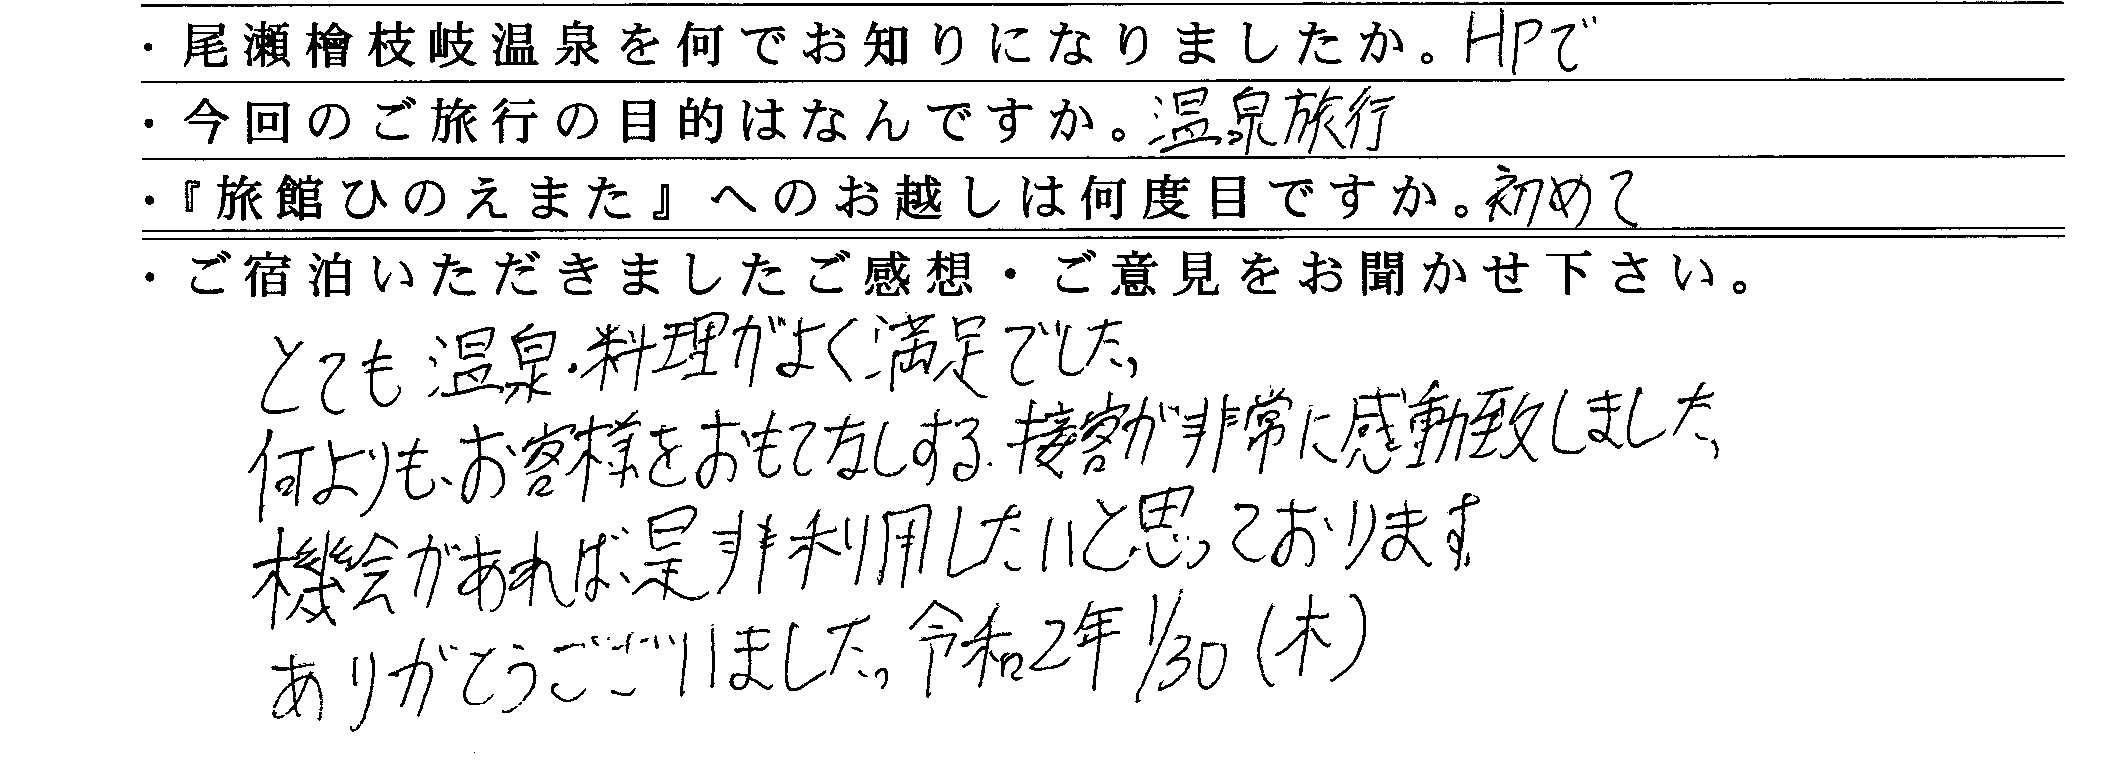 ・尾瀬檜枝岐温泉を何でお知りになりましたか。HPで
・今回のご旅行の目的はなんですか。温泉旅行
・『旅館ひのえまた』へのお越しは何度目ですか。初めて
・ご宿泊いただきましたご感想・ご意見をお聞かせ下さい。
とても温泉・料理がよく満足でした。
何よりも、お客様をおもてなしする、接客が非常に感動致しました。
機会があれば、是非利用したいと思っております
ありがとうございました。令和2年1/30(木)